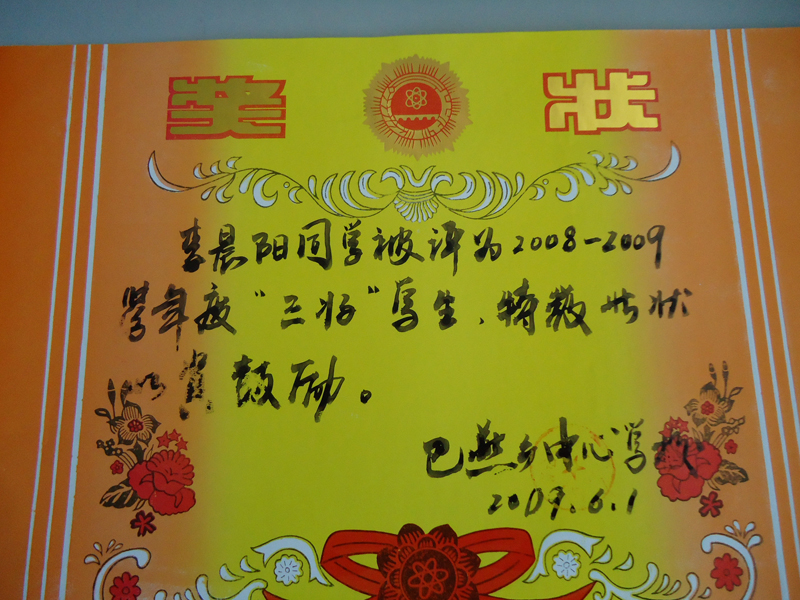 奖状
李晨阳同学被评为2008-2009
学年度“三好”学生,特发此状
以资鼓励。
巴燕乡中心学校
2009.6.1